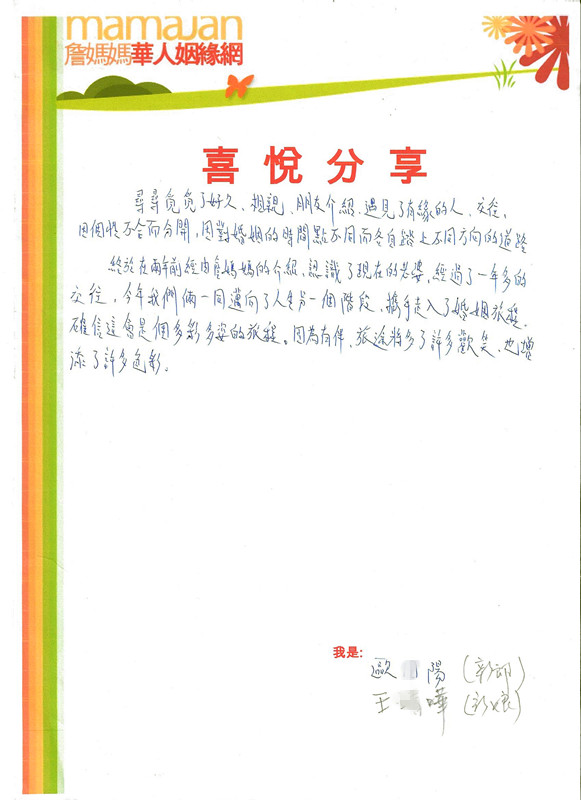 mamajan
詹媽媽華人姻緣網
喜悅分享
尋尋覓覓了好久、相親、朋友介紹、遇見了有緣的人、交往、
因個性不合而分開，因對婚姻的時間點不同而各自踏上不同方向的道路
終於在兩年前經由詹媽媽的介紹、認識了現在的老婆，經過了一年多的
交往，今年我們倆一同邁向了人生另一個階段，攜手走入了婚姻旅程，
確信這會是個多彩多姿的旅程。因為有伴，旅途將多了許多歡笑、也增
添了許多色彩。
我是:
歐 陽 (新郎)
王 嘩 (新娘)